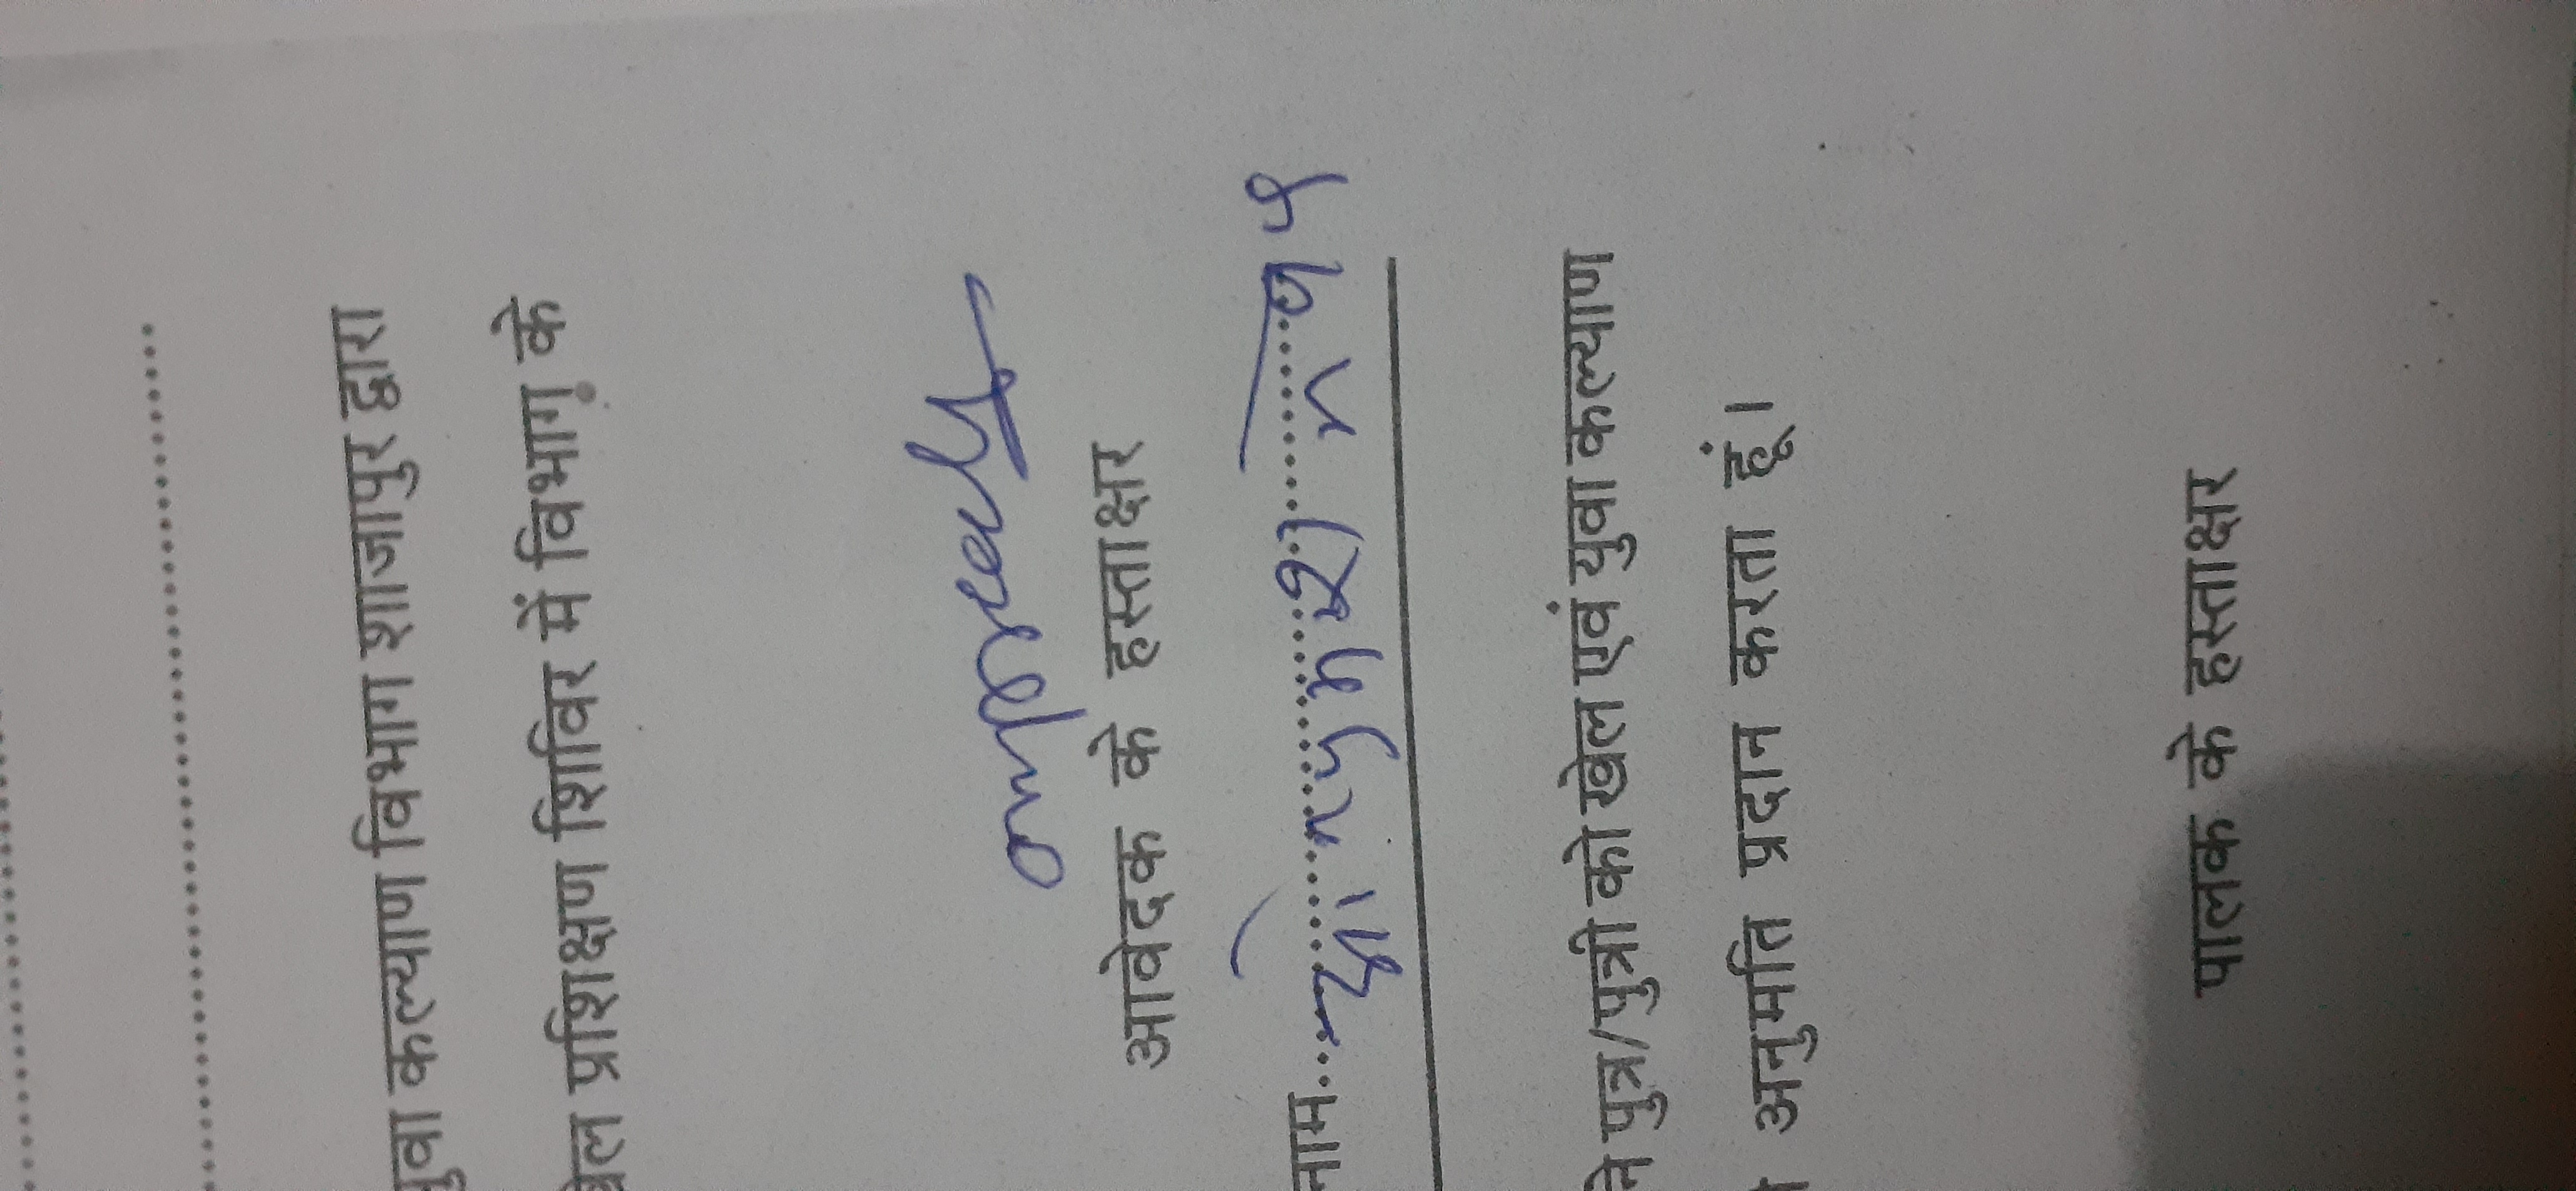 युवा कल्याण विभाग शाजापुर द्वारा
खेल प्रशिक्षण शिविर में विभाग के
आवेदक के हस्ताक्षर
नाम
ने पुत्र/पुत्री को खेल एवं युवा कल्याण
अनुमति प्रदान करता हूं।
पालक के हस्ताक्षर